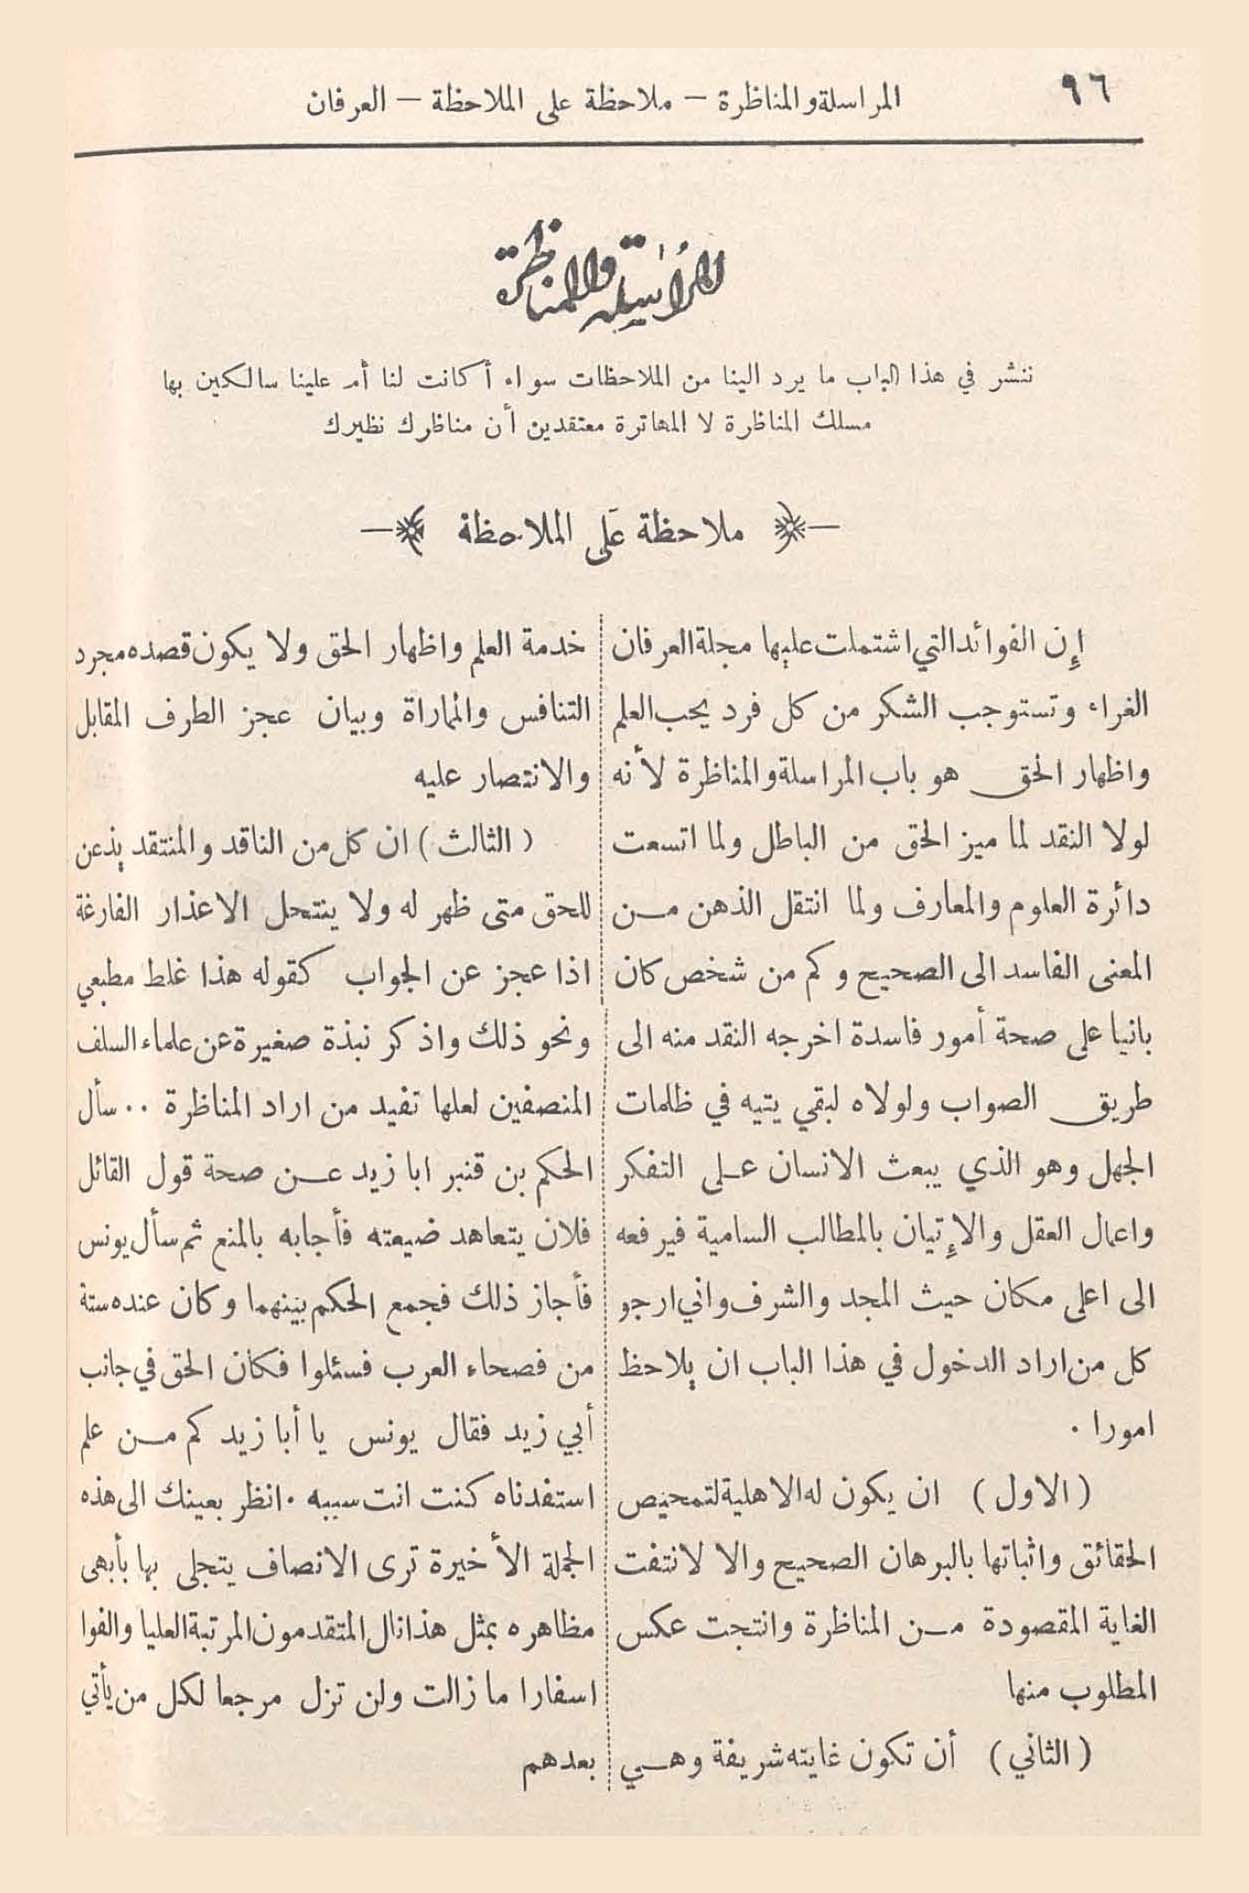 ٩٦
المراسلة والمناظرة – ملاحظة على الملاحظة – العرفان
المراسلة والمناظرة
ننشر في هذا الباب ما يرد الينا من الملاحظات سواء أكانت لنا أم علينا سالكين بها
مسلك المناظرة لا المهاترة معتقدين أن مناظرك نظيرك
ملاحظة على الملاحظة
إن الفوائد التي اشتملت عليها مجلة العرفان
الغراء وتستوجب الشكر من كل فرد يحب العلم
واظهار الحق هو باب المراسلة والمناظرة لأنه
لولا النقد لما ميز الحق من الباطل ولما اتسعت
دائرة العلوم والمعارف ولما انتقل الذهن من
المعنى الفاسد الى الصحيح وكم من شخص كان
بانيا على صحة أمور فاسدة اخرجه النقد منه الى
طريق الصواب ولولاه لبقي يتيه في ظلمات
الجهل وهو الذي يبعث الانسان على التفكر
واعمال العقل والإتيان بالمطالب السامية فيرفعه
الى اعلى مكان حيث المجد والشرف واني ارجو
كل من اراد الدخول في هذا الباب ان يلاحظ
امورا .
( الاول ) ان يكون له الاهلية لتمحيص
الحقائق واثباتها بالبرهان الصحيح والا لانتفت
الغاية المقصودة من المناظرة وانتجت عكس
المطلوب منها
( الثاني ) أن تكون غايته شريفة وهي
خدمة العلم واظهار الحق ولا يكون قصده مجرد
التنافس والمماراة وبيان عجز الطرف المقابل
والانتصار عليه
( الثالث ) ان كل من الناقد والمنتقد يذعن
للحق متى ظهر له ولا ينتحل الاعذار الفارغة
اذا عجز عن الجواب كقوله هذا غلط مطبعي
ونحو ذلك واذكر نبذة صغيرة عن علماء السلف
المنصفين لعلها تفيد من اراد المناظرة .. سأل
الحكم بن قنبر ابا زيد عن صحة قول القائل
فلان يتعاهد ضيعته فأجابه بالمنع ثم سأل يونس
فأجاز ذلك فجمع الحكم بينهما وكان عنده ستة
من فصحاء العرب فسئلوا فكان الحق في جانب
أبي زيد فقال يونس يا أبا زيد كم من علم
استفدناه كنت انت سببه . انظر بعينك الى هذه
الجملة الأخيرة ترى الانصاف يتجلى بها بأبهى
مظاهره بمثل هذا نال المتقدمون المرتبة العليا والفوا
اسفارا ما زالت ولن تزل مرجعا لكل من يأتي
بعدهم